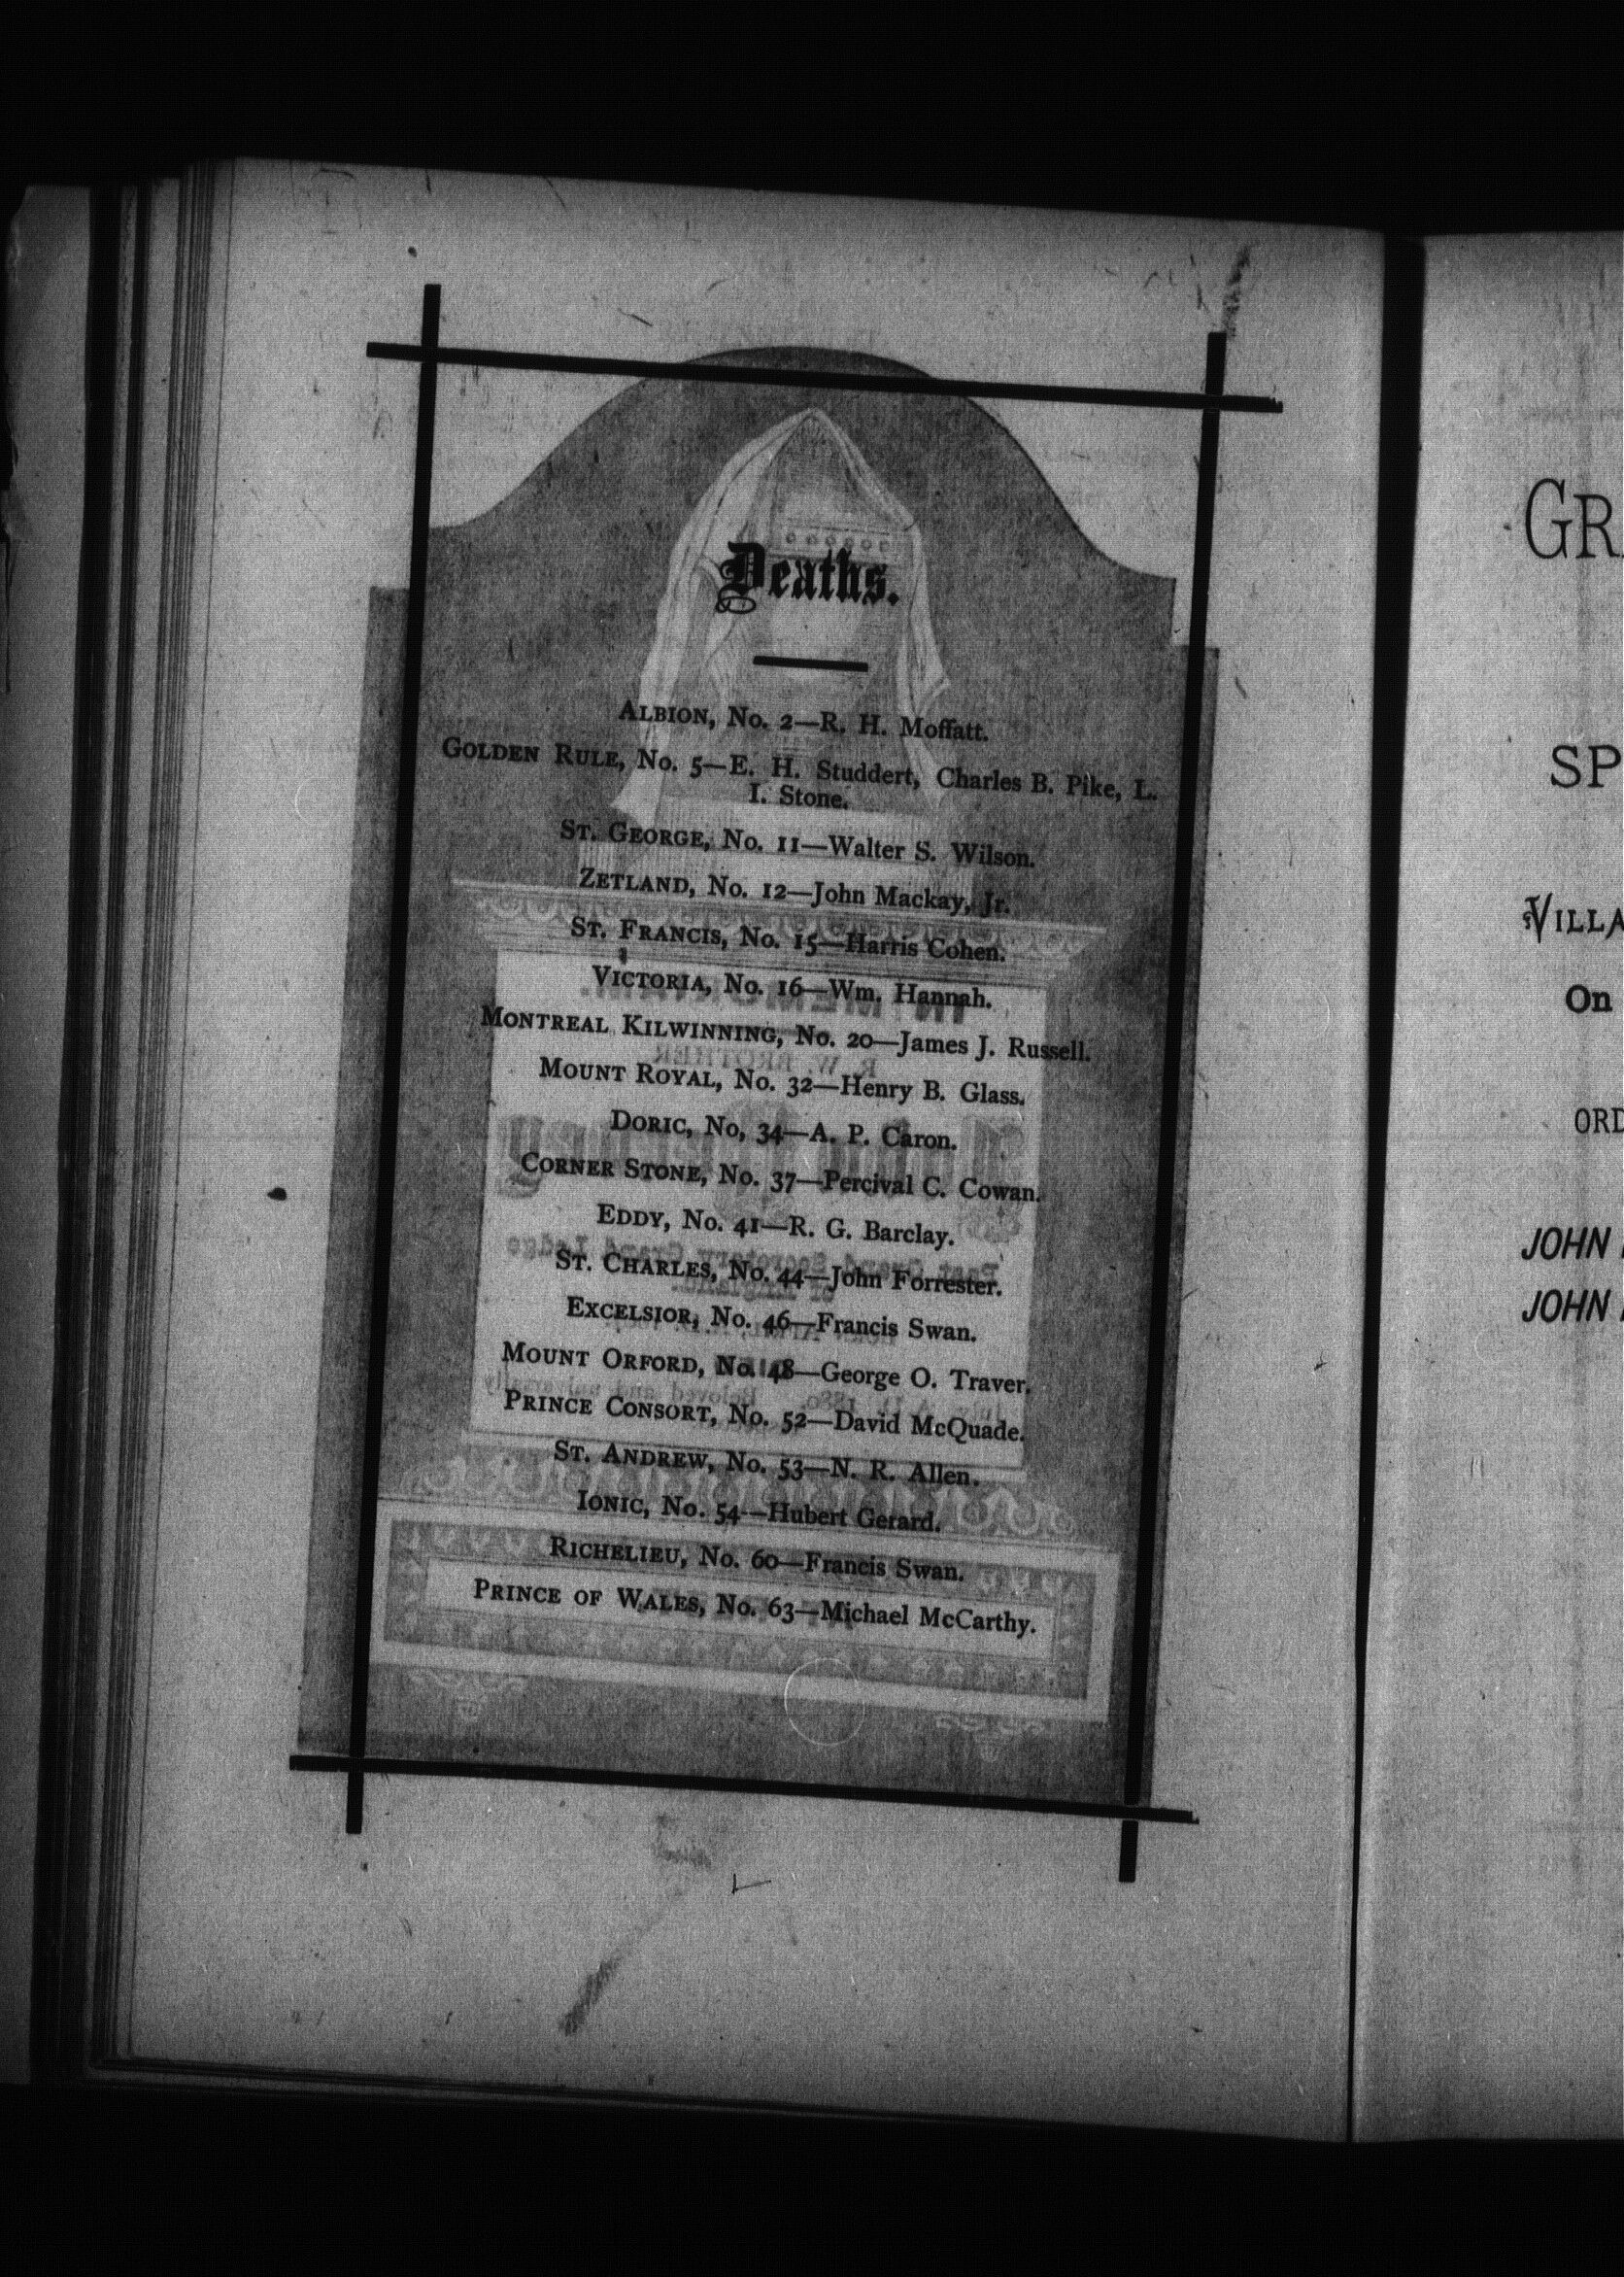 Deaths.
ALBION, No. 2—R. H. Moffatt.
GOLDEN RULE, No. 5—E. H. Studdert, Charles B. Pike, L.
I. Stone.
ST. GEORGE, No. 11—Walter S. Wilson.
ZETLAND, No. 12—John Mackay, Jr.
ST. FRANCIS, No. 15—Harris Cohen.
VICTORIA, No. 16—Wm. Hannah.
MONTREAL KILWINNING, No. 20—James J. Russell.
MOUNT ROYAL, No. 32—Henry B. Glass.
DORIC, No, 34—A. P. Caron.
CORNER STONE, No. 37—Percival C. Cowan.
EDDY, No. 41—R. G. Barclay.
ST. CHARLES, No. 44—John Forrester.
EXCELSIOR, No. 46—Francis Swan.
MOUNT ORFORD, No. 48—George O. Traver.
PRINCE CONSORT, No. 52—David McQuade.
ST. ANDREW, No. 53—N. R. Allen.
IONIC, No. 54—Hubert Gerard.
RICHELIEU, No. 60—Francis Swan.
PRINCE OF WALES, No. 63—Michael McCarthy.
GR
SP
VILLA
On
ORD
JOHN
JOHN